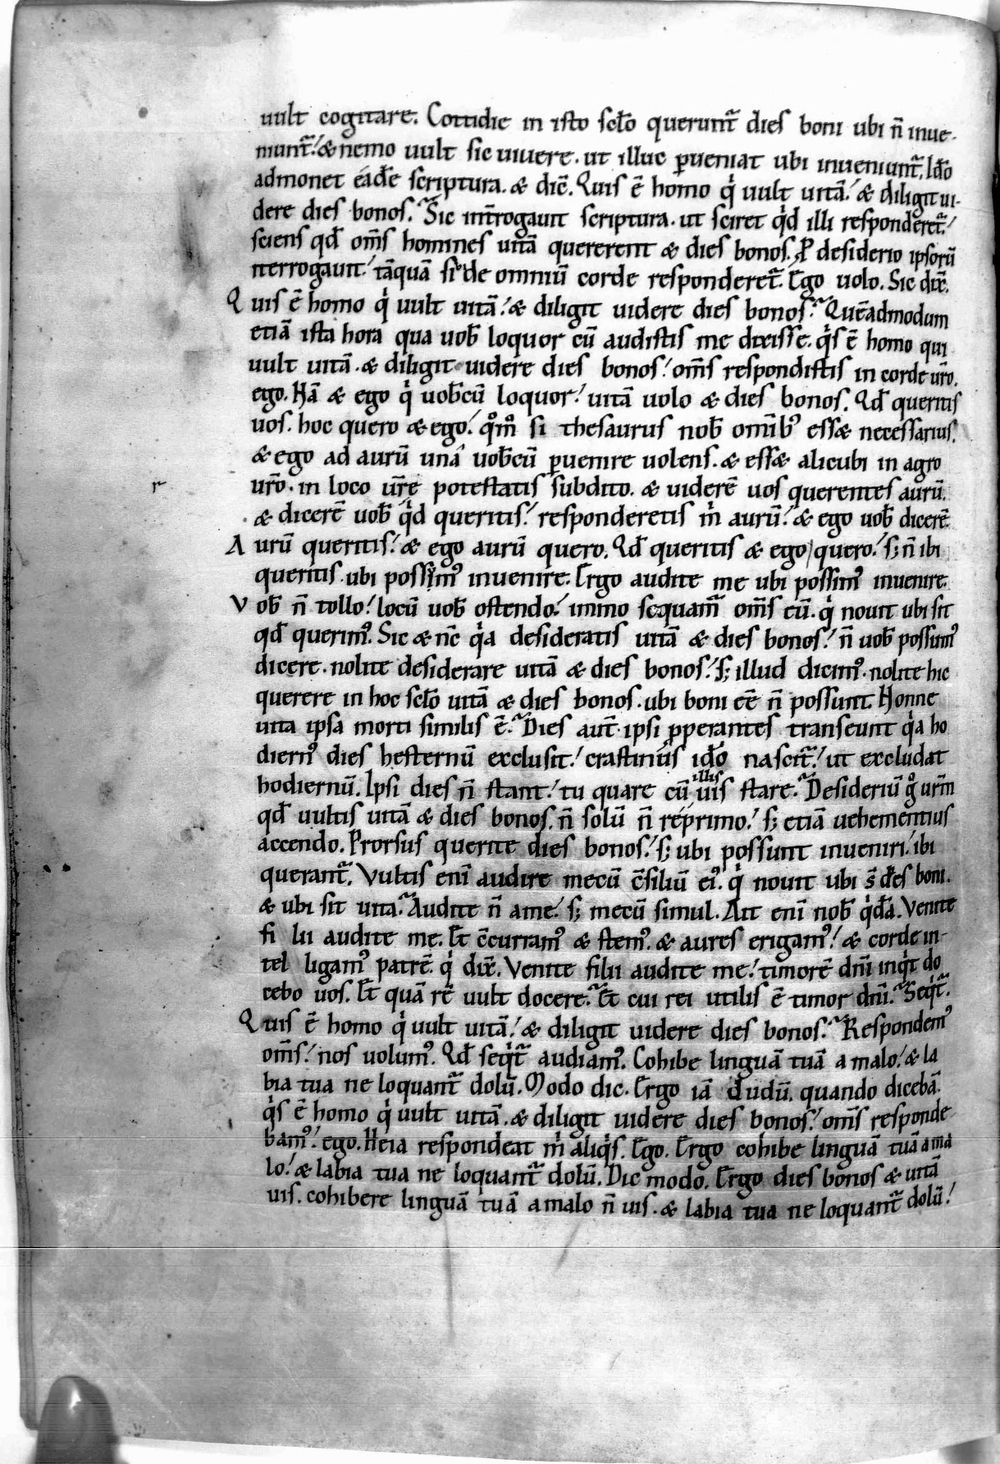 uult cogitare. Cottidie in isto sclo querunt᷑ dies boni ubi n̄ inue-
niunt᷑. & nemo uult sic uiuere. ut illuc ꝑueniat ubi inueniunt᷑. Ido
admonet eadē scriptura. & dic̄. Quis ē homo qͥ uult uitā. & diligit ui-
dere dies bonos. Sic int̄rogauit scriptura. ut sciret qͥd illi responderet᷑.
sciens qd̄ om̄s homines uitā quererent & dies bonos. P desiderio ipsorū
nterrogauit. tāquā si de omniū corde responderet᷑. Ego uolo. Sic dix̄.
Quis ē homo qͥ uult uitā. & diligit uidere dies bonos. Quēadmodum
etiā ista hora qua uob̄ loquor cū audistis me dixisse. qͥs ē homo qui
uult uitā. & diligit uidere dies bonos. om̄s respondistis in corde ur̄o.
ego. Nā & ego qͥ uob̄cū loquor. uitā uolo & dies bonos. Qd̄ queritis
uos. hoc quero & ego. qͦm̄ si thesaurus nob̄ omībꝰ essæ necessarius.
& ego ad aurū unā uob̄cū ꝑuenire uolens. & essæ alicubi in agro
ur̄o. in loco ur̄e potestatis subdito. & viderē uos querentes aurū.
& dicerē uob̄ qͥd queritis. responderetis m̄ aurū. & ego uob̄ dicerē
Aurū queritis. & ego aurū quero. Qd̄ queritis & ego quero. s; n̄ ibi
queritis ubi possimꝰ inuenire. Ergo audite me ubi possimꝰ inuenire
Vob̄ n̄ tollo. locū uob̄ ostendo. immo sequam᷑ om̄s eū. qͥ nouit ubi sit
qd̄ querimꝰ. Sic & nc̄ qͥa desideratis uitā & dies bonos. n̄ uob̄ possumꝰ
dicere. nolite desiderare uitā & dies bonos. s; illud dicimꝰ. nolite hic
querere in hoc sclo uitā & dies bonos. ubi boni ēē n̄ possunt. Nonne
uita ipsa morti similis ē. Dies aut̄ ipsi pperantes transeunt qͥa ho
diernꝰ dies hesternū exclusit. crastinus ido nascit᷑. ut excludat
hodiernū. Ipsi dies n̄ stant. tu quare cū illis uis stare. Desideriū gͦ ur̄m
qd̄ uultis uitā & dies bonos. n̄ solū n̄ reprimo. s; etiā uehementius
accendo. Prorsus querite dies bonos. s; ubi possunt inueniri. ibi
querant᷑. Vultis eni audire mecū c̄siliū eiꝰ. qͥ nouit ubi s̄ dies boni.
& ubi sit uita. Audite n̄ a me. s; mecū simul. Ait eni nob̄ qͥdā. Venite
fi lii audite me. Et c̄curramꝰ & stemꝰ. & aures erigamꝰ. & corde in-
tel ligamꝰ patrē. qͥ dix̄. Venite filii audite me. timorē dn̄i inqͥt do
cebo uos. Et quā rē uult docere. Et cui rei utilis ē timor dn̄i. Seqͥt᷑.
Quis ē homo qͥ uult uitā. & diligit uidere dies bonos. Respondemꝰ
om̄s. nos uolumꝰ. Qd̄ seqͥt᷑ audiamꝰ. Cohibe linguā tuā a malo. & la
bia tua ne loquant᷑ dolū. Modo dic. Ergo iā dudū. quando dicebā.
qͥs ē homo qͥ uult uitā. & diligit uidere dies bonos. om̄s responde
bamꝰ. ego. Heia respondeat m̄ aliqͥs. Ego. Ergo cohibe linguā tuā a ma
lo. & labia tua ne loquant᷑ dolū. Dic modo. Ergo dies bonos & uitā
uis. cohibere linguā tuā a malo n̄ uis. & labia tua ne loquant᷑ dolū.